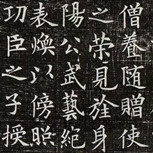 僧養随贈使
之荣見於身
陽公武藝絕
表煥以傍照
功臣之子授